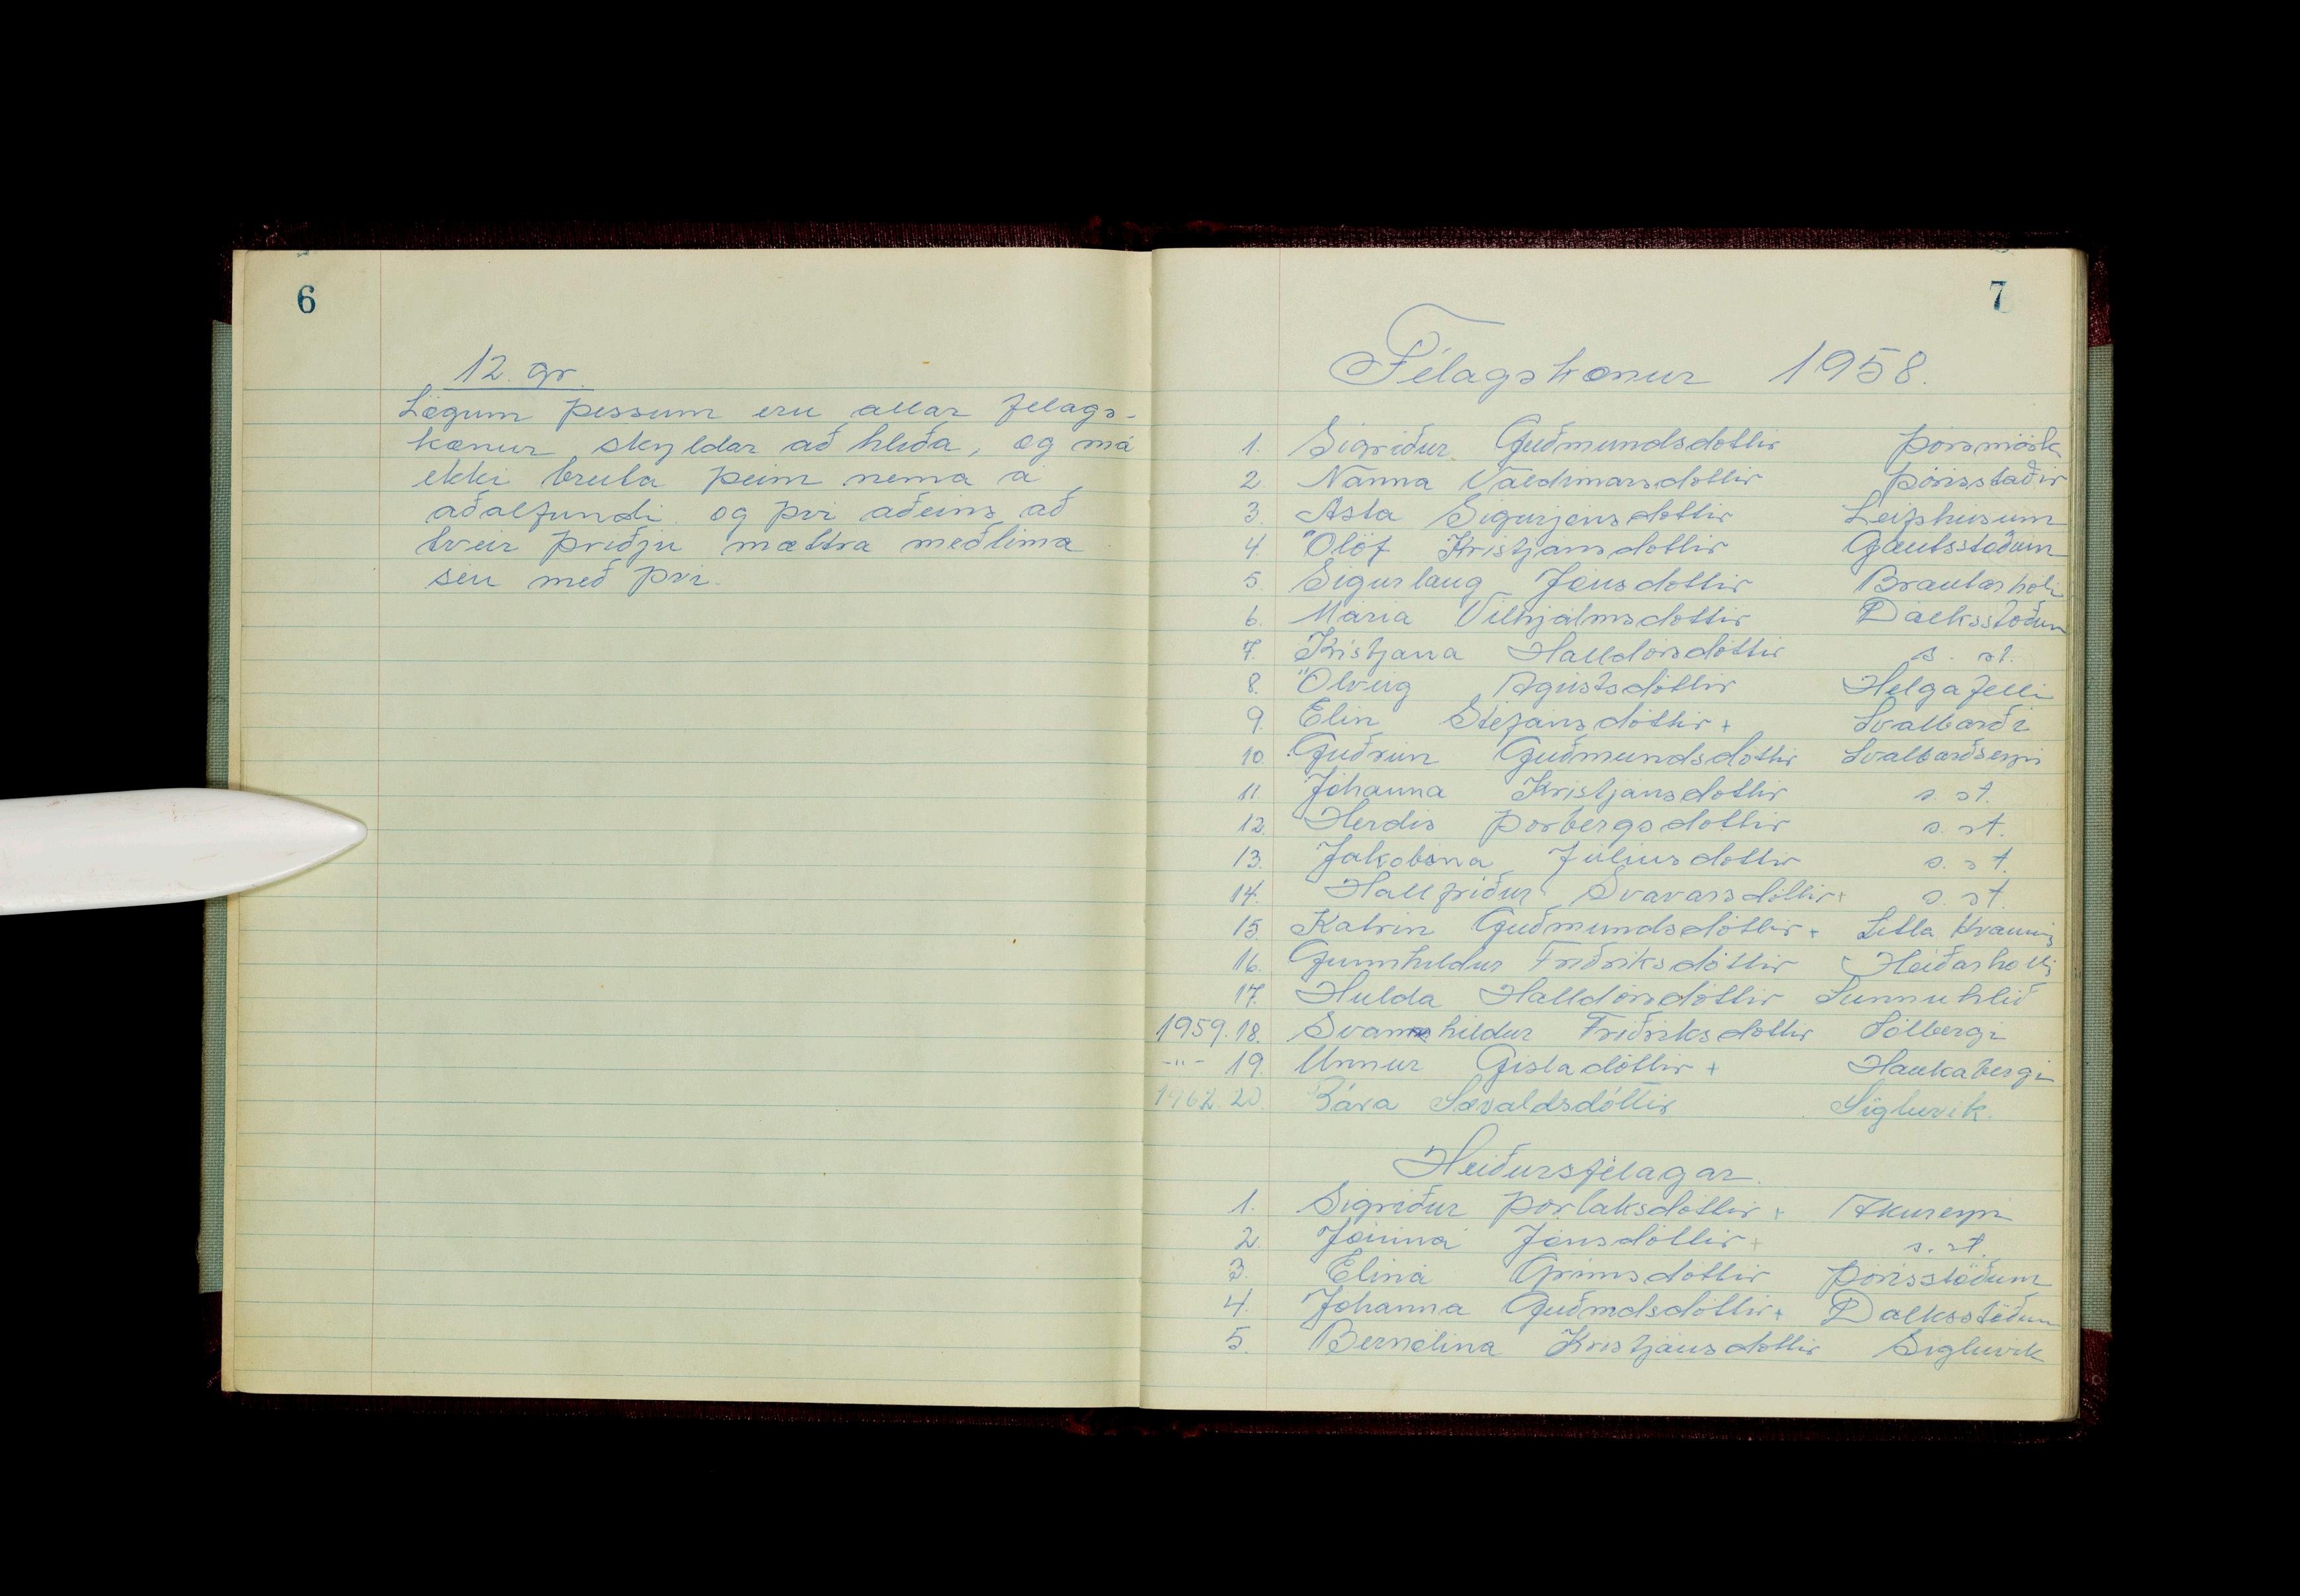 6
12. gr.
Lögum þessum eru allar félags-
konur skyldar að hlíða, og má
ekki breita þeim nema á
aðalfundi og því aðeins að
tveir þriðju mættra meðlima
séu með því.
7
Félagskonur 1958.
1. Sigríður Guðmundsdóttir Þórsmörk
2. Nanna Valdimarsdóttir Þórisstaðir
3. Ásta Sigurjónsdóttir Leifshúsum
4. Ólöf Kristjánsdóttir Gautsstöðum
5. Sigurlaug Jónsdóttir Brautarholi
6. María Vilhjálmsdóttir Dálksstöðum
7. Kristjana Halldórsdóttir s. st.
8. Ólveig Ágústsdóttir Helgafelli
9. Elín Stefánsdóttir + Svalbarði
10. Guðrún Guðmundsdóttir Svalbarðseyri
11. Jóhanna Kristjánsdóttir s. st.
12. Herdís Þorbergsdóttir s. st.
13. Jakobína Júlíusdóttir s. st.
14. Hallfríður Svavarsdóttir + s. st.
15. Katrín Guðmundsdóttir + Litla Hvammi
16. Gunnhildur Friðriksdóttir Heiðarholti
17. Hulda Halldórsdóttir Sunnuhlíð
1959. 18. Svanhildur Friðriksdóttir Sólbergi
-"- 19. Unnur Gísladóttir + Haukabergi
1962. 20. Bára Sævaldsdóttir Sigluvík.
Heiðursfélagar.
1. Sigríður Þorláksdóttir + Akureyri
2. Jónína Jónsdóttir + s. st.
3. Elína Grímsdóttir Þórisstöðum
4. Jóhanna Guðmdsdóttir + Dálksstöðum
5. Bernólína Kristjánsdóttir Sigluvík